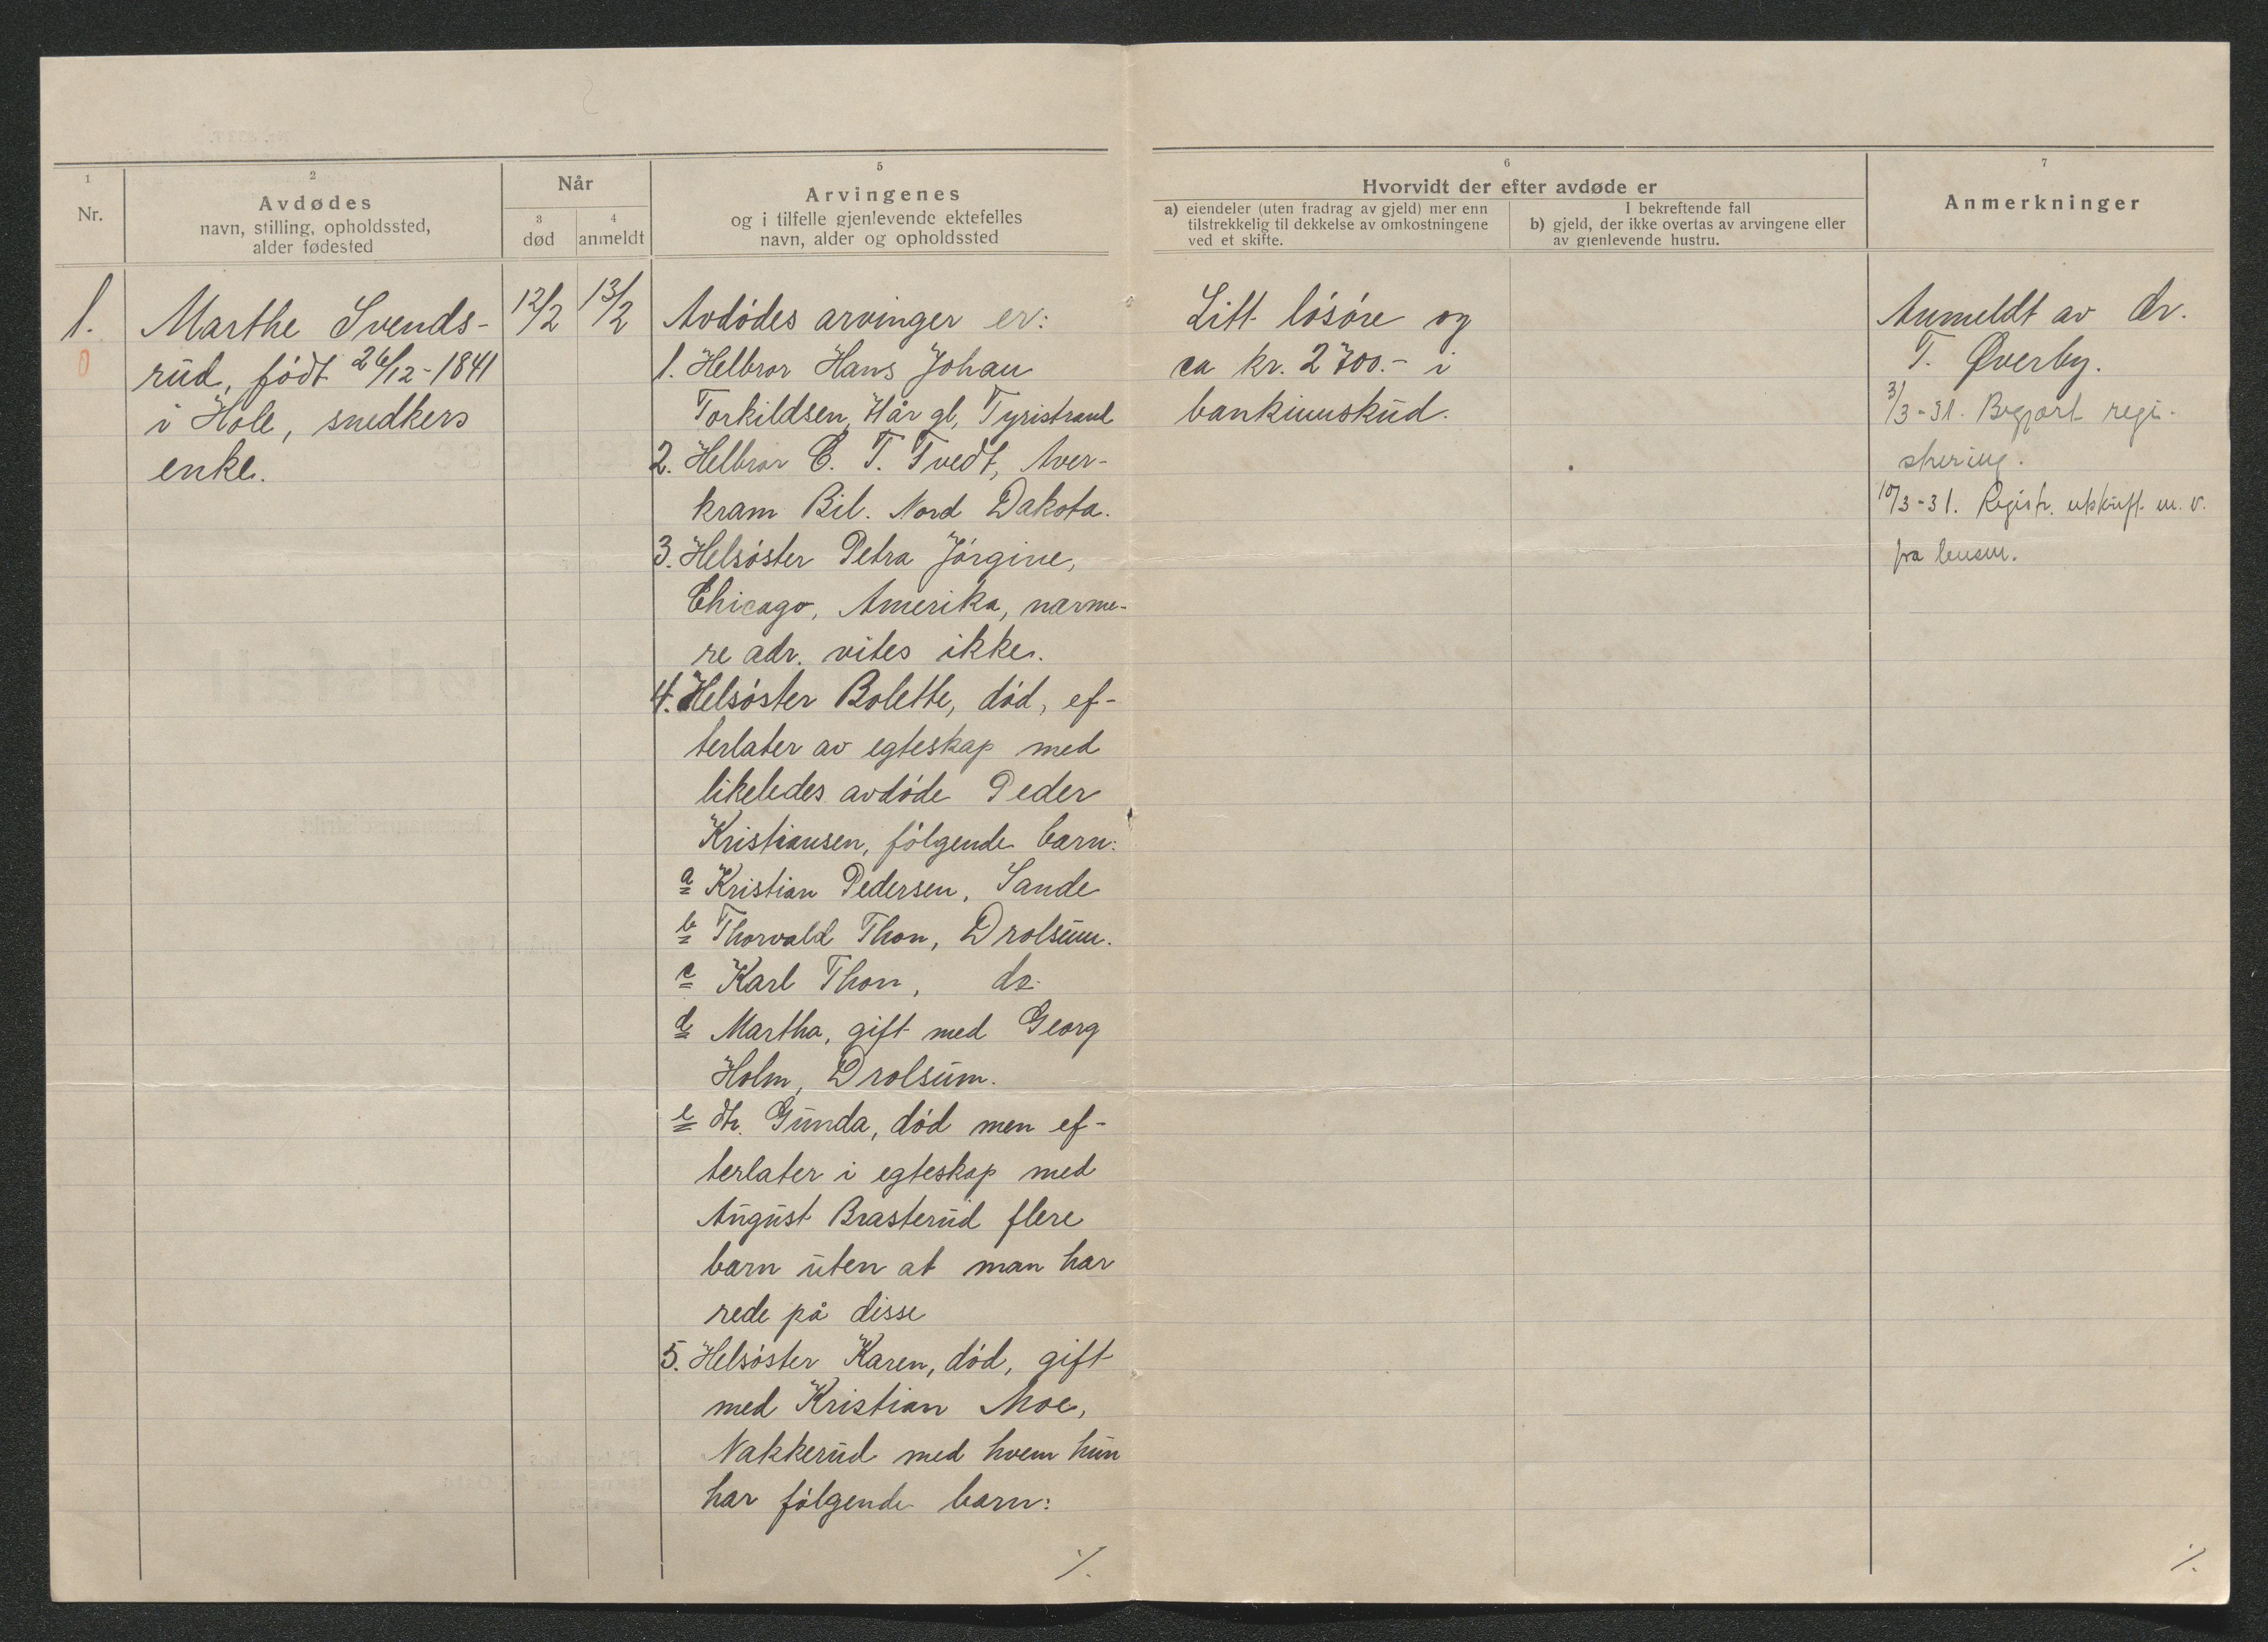 1
Nr.
2
Avdødes
navn, stilling, opholdssted,
alder fødested
Når
3
død
4
anmeldt
5
Arvingenes
og i tilfelle gjenlevende ektefelles
navn, alder og opholdssted
6
Hvorvidt der efter avdøde er
a) eiendeler (uten fradrag av gjeld) mer enn
tilstrekkelig til dekkelse av omkostningene
ved et skifte.
I bekreftende fall
b) gjeld, der ikke overtas av arvingene eller
av gjenlevende hustru.
7
Anmerkninger
1.
0
Marthe Svends-
rud, født 26/12-1841
i Hole, snedkers
enke.
12/2
13/2
Avdødes arvinger er:
1. Helbror Hans Johan
Torkildsen, Hår gl, Tyristrand
2. Helbror C. T. Tvedt, Aver-
kram Bil. Nord Dakota.
3. Helsøster Petra Jørgine,
Chicago, Amerika, nærme-
re adr. vites ikke.
4. Helsøster Bolette, død, ef-
terlater av egteskap med
likeledes avdøde Peder
Kristiansen, følgende barn:
a Kristian Pedersen, Sande
b Thorvald Thon, Drolsum.
c Karl Thon, do.
d Martha, gift med Georg
Holm, Drolsum.
e dtr. Gunda, død men ef-
terlater i egteskap med
August Brasterud flere
barn uten at man har
rede på disse
5. Helsøster Karen, død, gift
med Kristian Moe,
Nakkerud med hvem hun
har følgende barn:
./.
Litt løsøre og
ca kr. 2700.- i
bankinnskud.
Anmeldt av dr.
T. Øverby.
3/3-31. Begjært regi-
strering.
10/3-31. Registr. utskrift m. v.
fra lensm.
./.